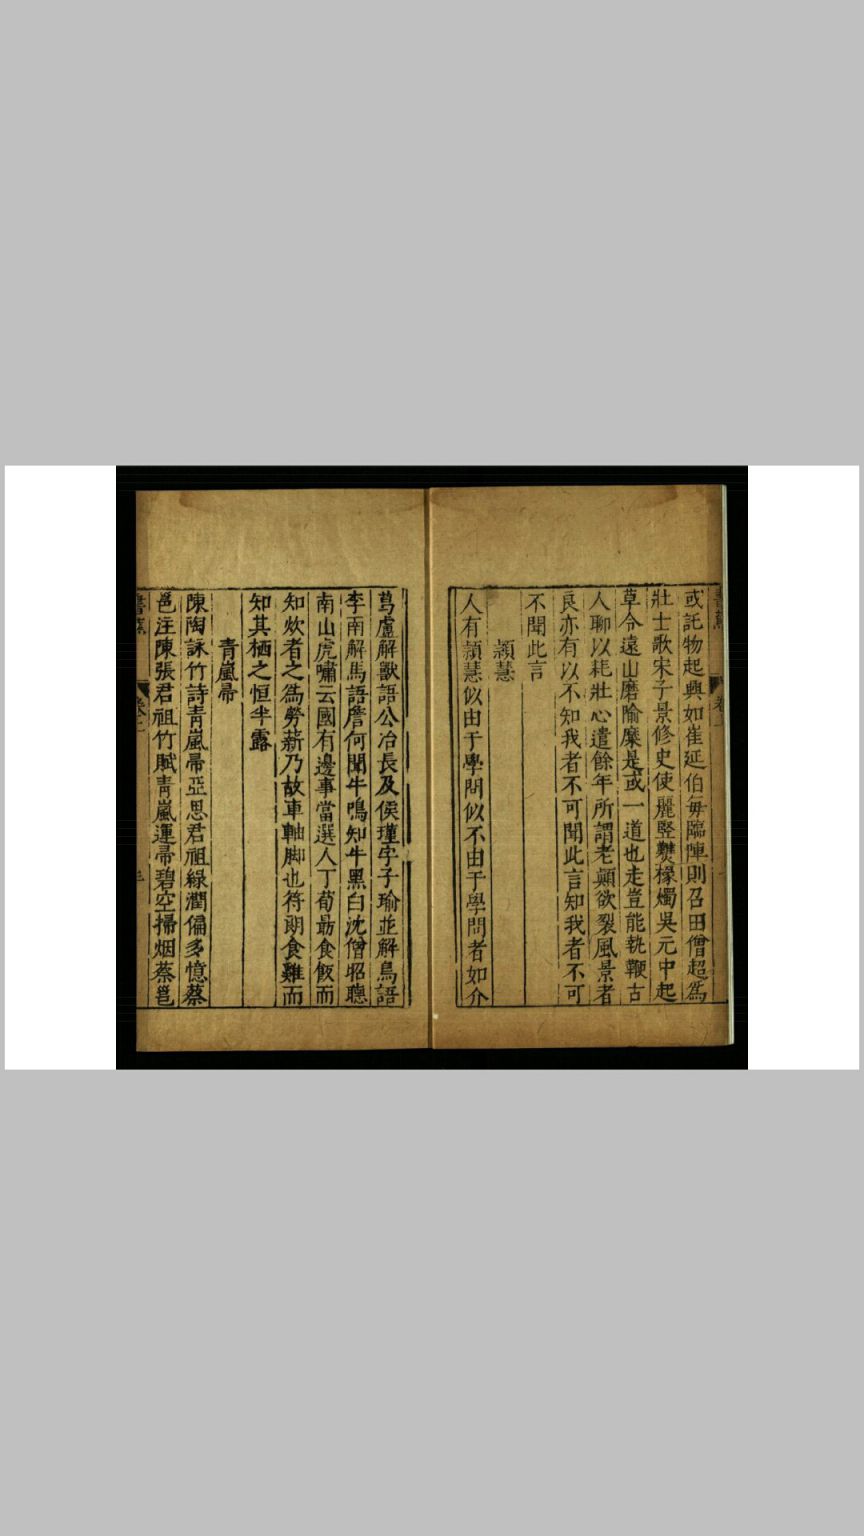 或託物起興如崔延伯每臨陣則召田僧超為
壯士歌宋子景修史使麗豎𤏡椽燭吳元中起
草令遠山磨隃糜是或一道也走豈能執鞭古
人聊以耗壯心遣餘年所謂老顛欲裂風景者
良亦有以不知我者不可聞此言知我者不可
不聞此言
穎慧
人有穎慧似由于學問似不由于學問者如介
葛盧解獸語公冶長及侯瑾字子瑜並解鳥語
李南解馬語詹何聞牛鳴知牛黑白沈僧昭聽
南山虎嘯云國有邊事當選人丁荀勗食飯而
知炊者之為勞薪乃故車軸脚也符朗食雞而
知其栖之恒半露
青嵐帚
陳陶詠竹詩青嵐帚亞思君祖綠潤偏多憶蔡
邕注陳張君祖竹賦青嵐運帚碧空掃烟蔡邕
書蕉
卷上